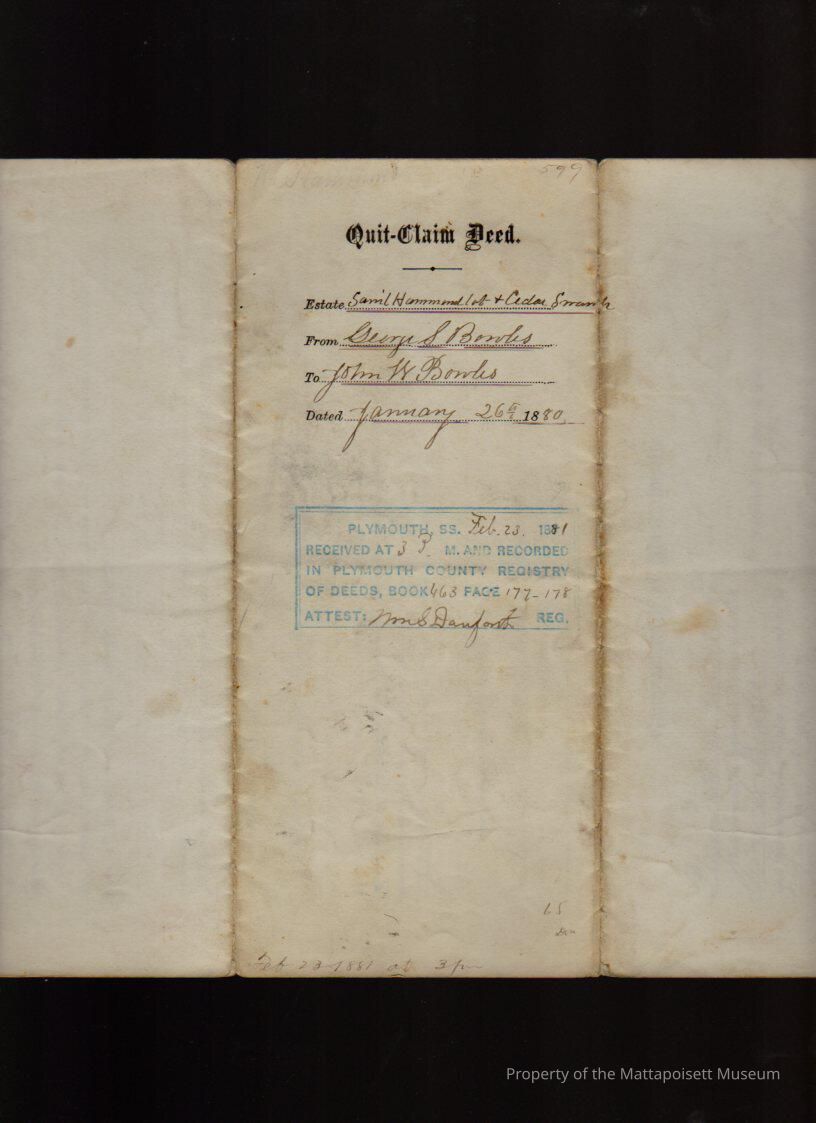 599
Quit-Claim Deed.
Estate Sam'l Hammond lot & Cedar Swamp
From George S Bowles
To John W Bowles
Dated January 26th 1880
PLYMOUTH, SS. Feb. 23. 1881
RECEIVED AT 3 P. M. AND RECORDED
IN PLYMOUTH COUNTY REGISTRY
OF DEEDS, BOOK 463 PAGE 177-178
ATTEST: Wm S Danforth REG.
65
Feb 23 1881 at 3 pm
Property of the Mattapoisett Museum